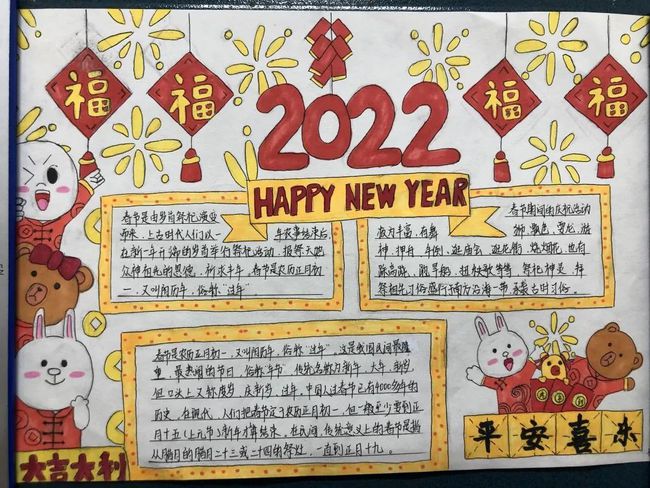 福
福
福
福
2022
HAPPY NEW YEAR
春节是由岁首祈祀演变
而来,上古时代人们以一
年农事结束后,
在新一年开端的岁首举行祭祀活动,报祭天地
众神和祖先的恩德,祈求丰年,春节是农历正月初
一,又叫阴历年,俗称“过年”
春节期间的庆祝活动
极为丰富,有舞
狮、飘色、耍龙、游
神、押舟、年例、逛庙会、逛花街、烧烟花,也有
踩高跷、跑旱船、扭秧歌等等,祭祀神灵、拜
祭祖先习俗盛行于南方沿海一带,
古时习俗。
春节是农历正月初一,又叫阴历年,俗称“过年”。这是我国民间最隆
重、最热闹的节日
传统名称为新年、大年、新岁,
但口头上又称度岁、庆新岁、过年,中国人过春节已有4000多年的
历史,在现代,人们把春节定于农历正月初一,但一般至少要到正
月十五(上元节)新年才算结束,在民间,传统意义上的春节是指
从腊月的腊月二十三或二十四的祭灶,一直到正月十九。
大吉大利
平安喜乐